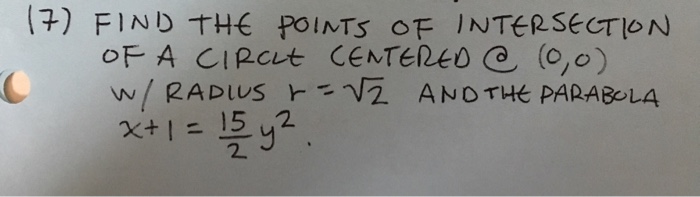 (7) FIND THE POINTS OF INTERSECTION
OF A CIRCLE CENTERED @ (0,0)
W/ RADIUS r = √2 AND THE PARABOLA
x+1 = 15/2 y².